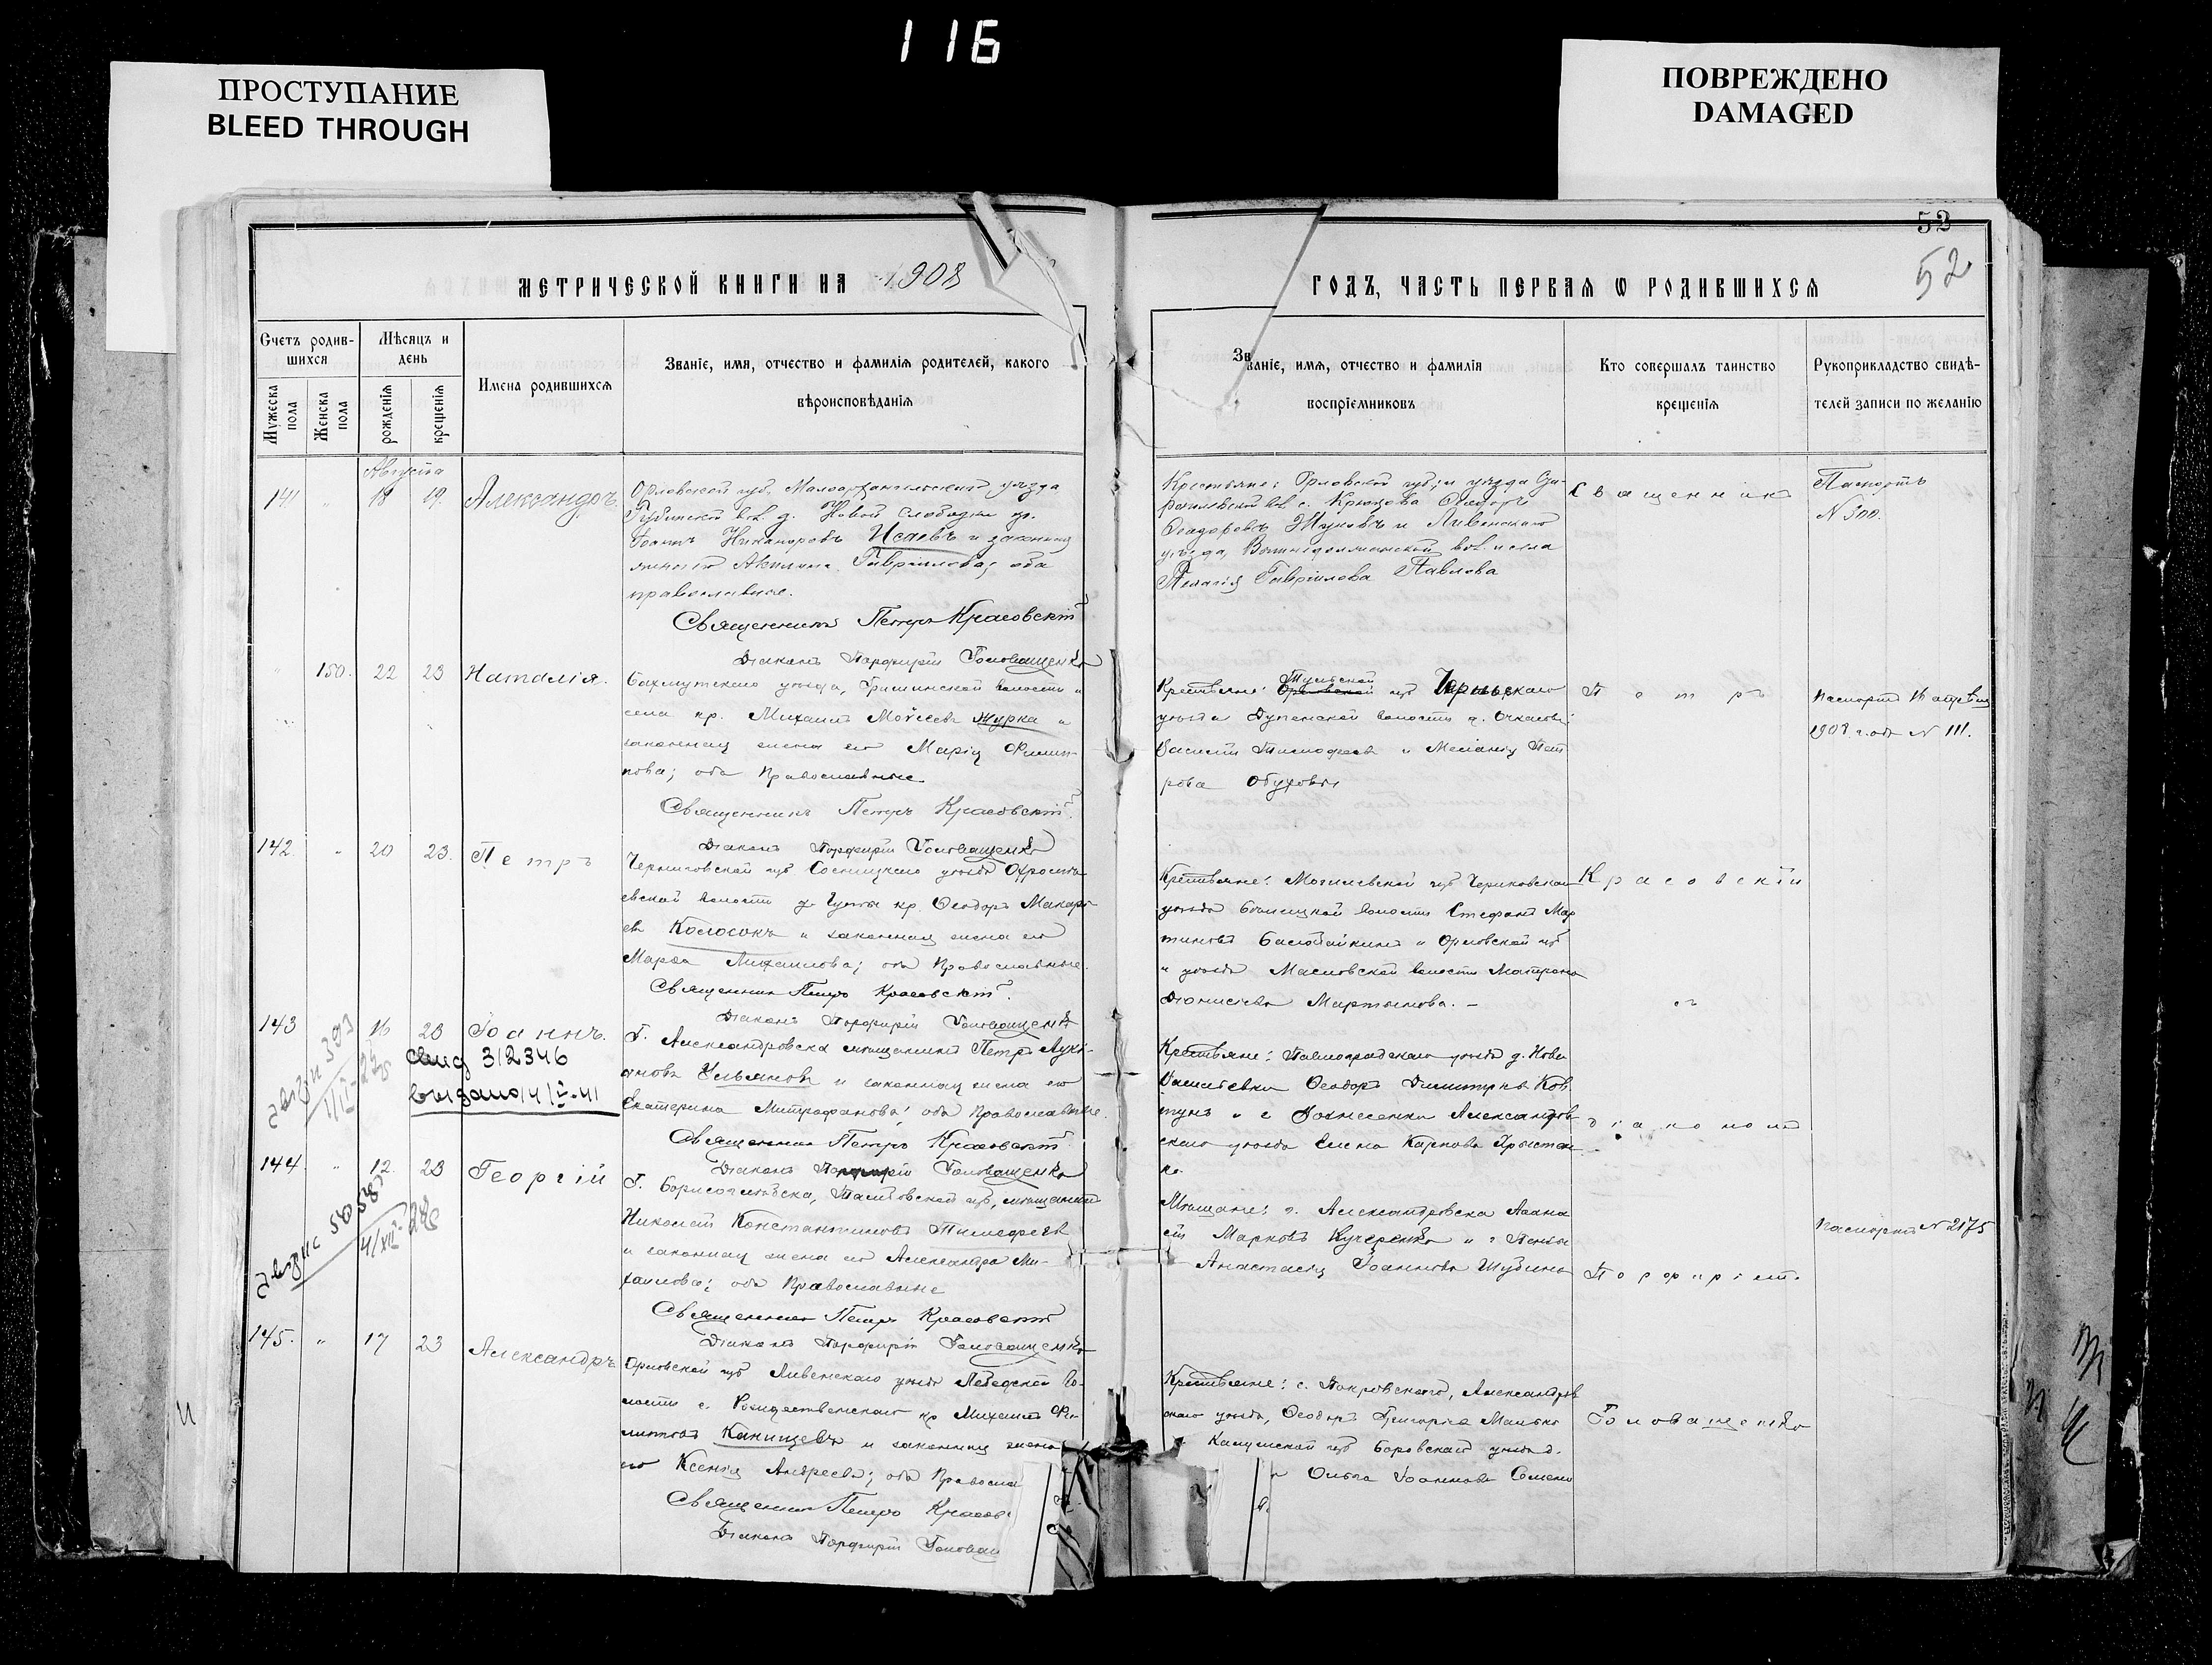 116
ПРОСТУПАНИЕ
BLEED THROUGH
ПОВРЕЖДЕНО
DAMAGED
52
52
МЕТРИЧЕСКОЙ КНИГИ НА 1908
ГОДЪ, ЧАСТЬ ПЕРВАЯ Ѡ РОДИВШИХСЯ
Счетъ родив-
шихся
Мужеска пола
Женска пола
Мѣсяцъ и
день
рожденія
крещенія
Имена родившихся
Званіе, имя, отчество и фамилія родителей, какого
вѣроисповѣданія
Званіе, имя, отчество и фамилія
воспріемниковъ
Кто совершалъ таинство
крещенія
Рукоприкладство свидѣ-
телей записи по желанію
Августа
141 " 18 19. Александръ.
Орловской губ. Малоархангельскаго уѣзда
вол. д. Новой Слободки кр.
Іоаннъ Никаноровъ Исаевъ и законная
жена его Гавріилова; оба
православные.
Священникъ Петръ Красовскій
Діаконъ Порфирій Головащенко
Крестьяне: Орловской губ. и уѣзда
вол. с. Крюкова Ѳеодоръ
Ѳеодоровъ Жуковъ и Ливенскаго
уѣзда, вол. и села
Пелагія Гавріилова Павлова
Священникъ
Паспортъ
N 300.
" 150. 22 23 Наталія.
Бахмутскаго уѣзда, Гришинской волости и
села кр. Михаилъ Моѵсеевъ Журка и
законная жена его Марія Филип-
пова; оба Православные
Священникъ Петръ Красовскій.
Діаконъ Порфирій Головащенко
Крестьяне: Тульской губ
уѣзда волости д.
Василій Тимофеевъ и Меланія Пет
рова Обуховы
Петръ
Паспортъ 16 апрѣля
1908 года N 111.
142. " 20 23. Петръ
Черниговской губ Сосницкаго уѣзда
волости кр. Ѳеодоръ Макарі-
евъ Колосокъ и законная жена его
Марѳа Михаилова; оба Православные.
Священникъ Петръ Красовскій.
Діаконъ Порфирій Головащенко
Крестьяне: Могилевской губ Чериковскаго
уѣзда волости Стефанъ Мар
тиновъ и Орловской губ
и уѣзда Масловской волости Матрона
Діонисіева Мартынова. -
Красовскій
съ
143 16 23 Іоаннъ.
312346
выдано 14/V-41
Г. Александровска мѣщанинъ Петръ Луки-
ановъ Ульяновъ и законная жена его
Екатерина Митрофанова; оба Православные.
Священникъ Петръ Красовскій
Діаконъ Порфирій Головащенко
Крестьяне: Павлоградскаго уѣзда д. Ново
Васильевки Ѳеодоръ Димитріевъ Ков
тунъ и с Вознесенки Александров
скаго уѣзда Елена Карпова
ко.
діакономъ
144 " 12. 23 Георгій
Г. Борисоглѣбска, Тамбовской губ, мѣщанинъ
Николай Константиновъ Тимофеевъ
и законная жена его Александра Ми-
хаилова; оба Православные
Священникъ Петръ Красовскій
Діаконъ Порфирій Головащенко
Мѣщане: г. Александровска Аѳана
сій Марковъ Кучеренко и г Пензы
Анастасія Іоаннова Шубина
Порфиріемъ.
Паспортъ N 2175
145. " 17 23 Александръ
Орловской губ Ливенскаго уѣзда во-
лости с. Рождественскаго кр Михаилъ Фи-
липповъ Канищевъ и законная жена
его Ксенія Андреева; оба Правосла
Священникъ Петръ Красов
Діаконъ Порфирій Головащ
Крестьяне: с. Покровскаго, Александров
скаго уѣзда, Ѳеодоръ Григорьевъ Малько
Калужской губ Боровскаго уѣзда д.
Ольга Іоаннова Семен
Головащенко